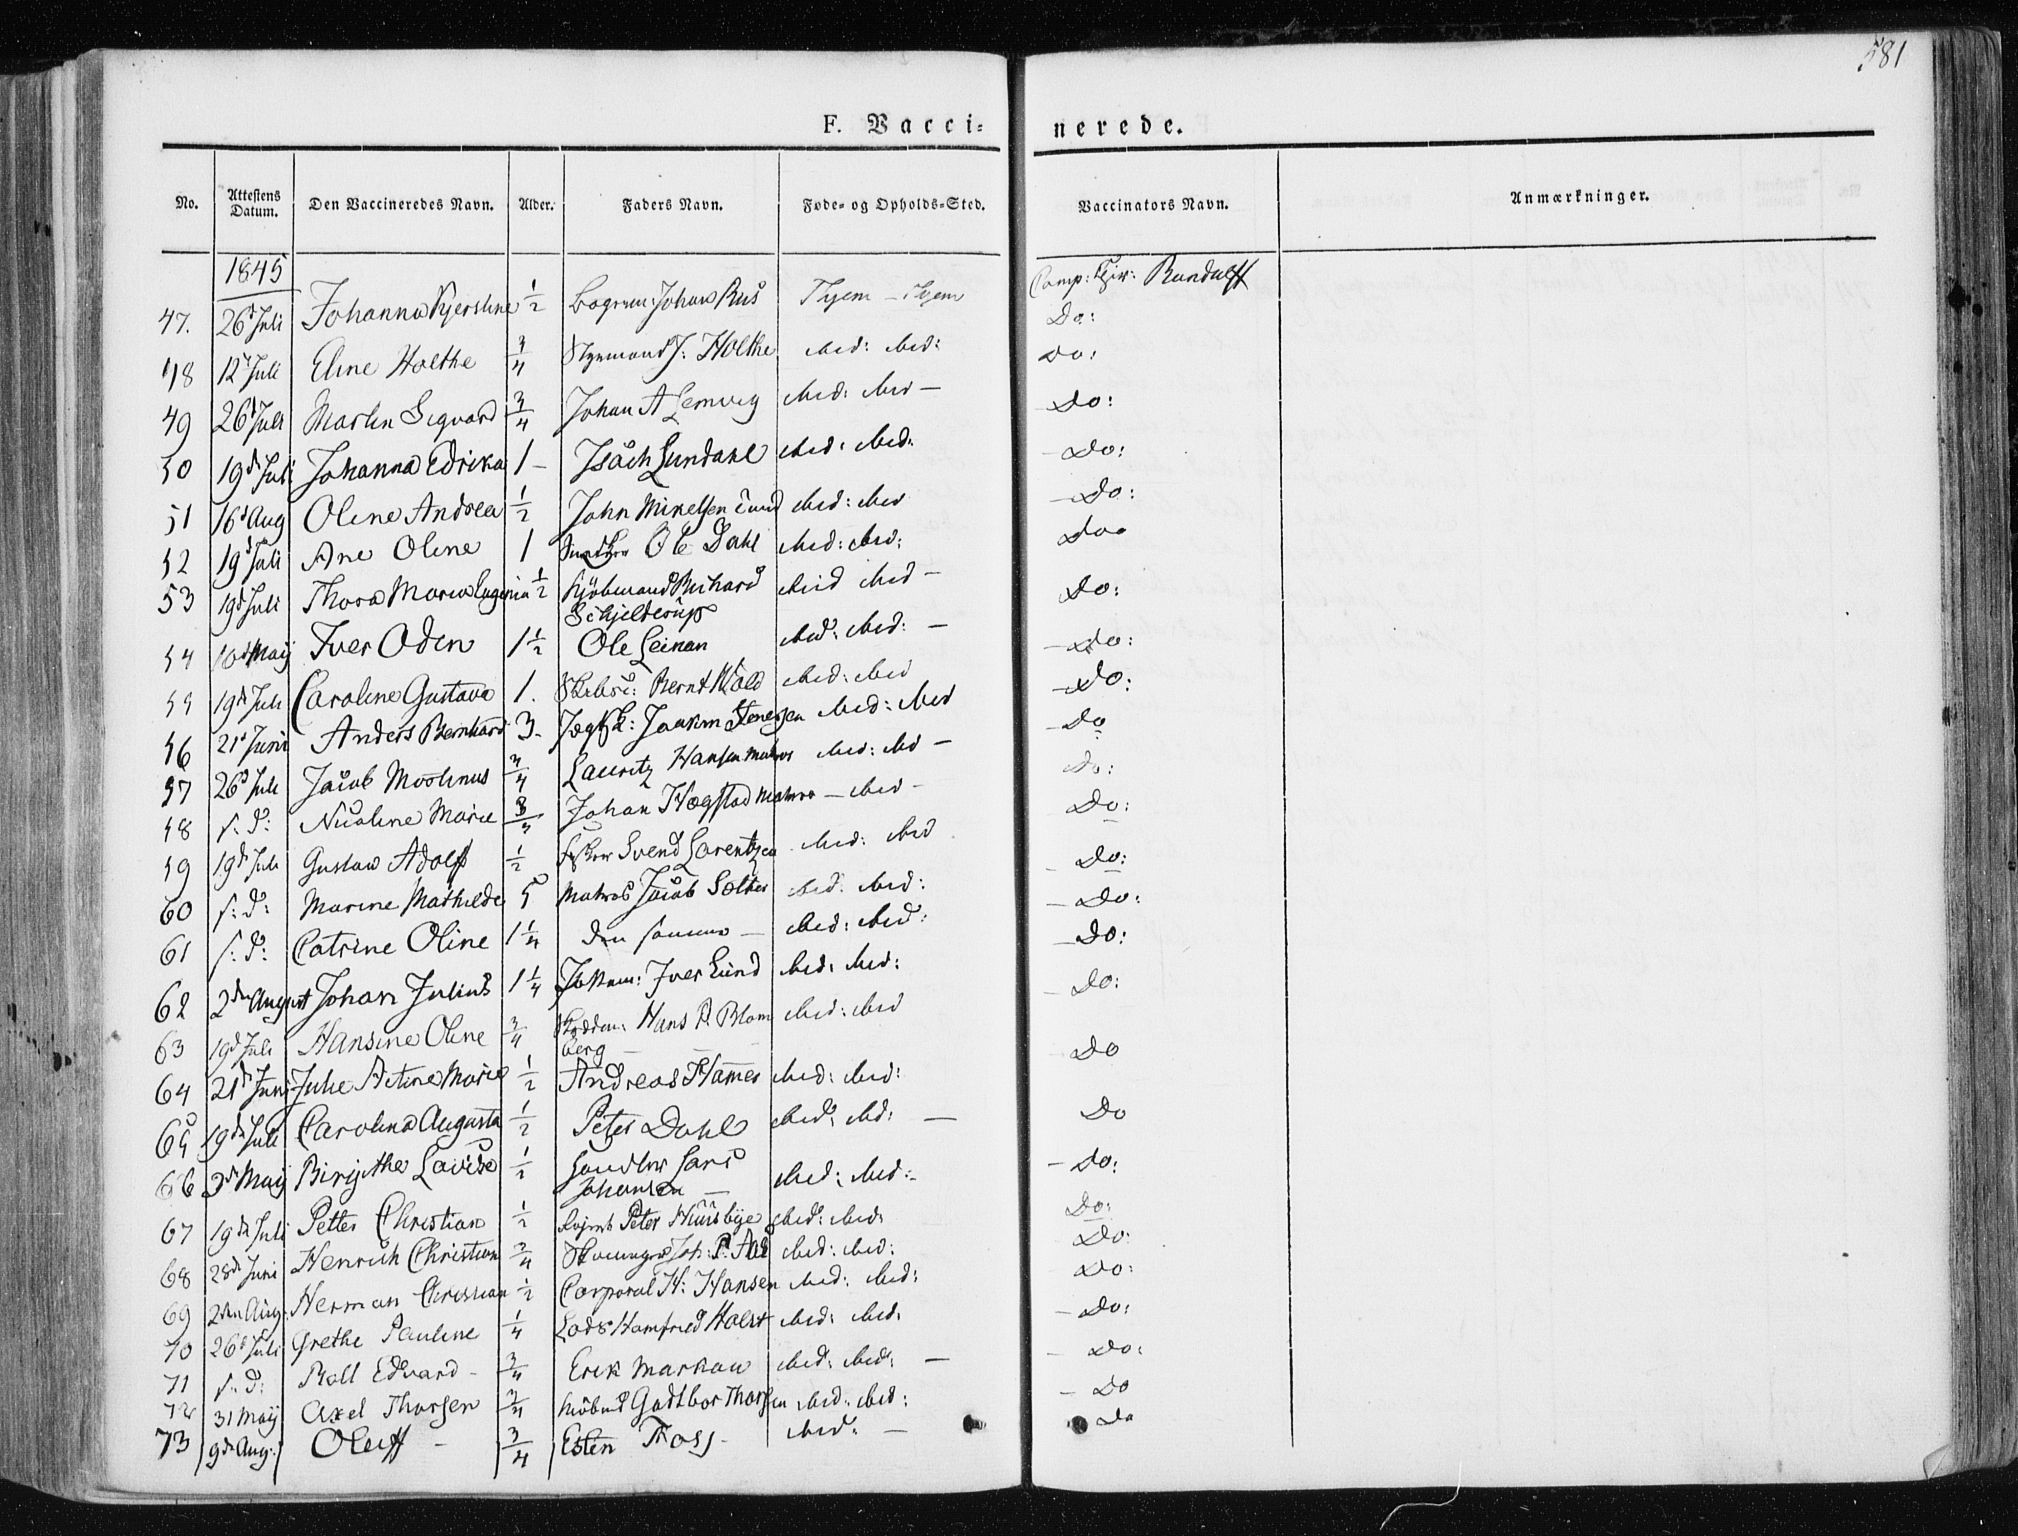 581
F. Vacci=nerede.
No. Attestens Datum. Den Vaccineredes Navn. Alder. Faders Navn. Føde- og Opholds-Sted. Vaccinators Navn. Anmærkninger.
1845
47. 26d Juli Johanna Kjerstine 1/2 Johan Rus Comp: Chir: Rundulff
Do:
48 12t Juli Eline Holthe 3/4 Styrmand J: Holthe ibid: ibid: Do:
49 26d Juli Martin Sigvard 3/4 Johan A Lemvig ibid: ibid — Do:
50 19de Juli Johanna Edrika 1 — Isach Lundahl ibid: ibid: Do:
51 16d Aug Oline Andrea 1/2 John Mikelsen Lund ibid: ibid Do:
52 19d Juli Ane Oline 1 Ole Dahl ibid: ibid: Do
53 19d Juli Thora Maria Eugenia 1/2 Kjöbmand Richard ibid ibid — Do:
Schjelderup
54 10d Maij Iver Oden 1 1/2 Ole Leinan ibid: ibid: — Do:
55 19d Juli Caroline Gustava 1. Bernt Wold ibid: ibid Do:
56 21d Juni Anders Bernhard 3. Joakim Stenersen ibid: ibid Do
57 26d Juli Jacob Mostinus 3/4 Lauritz Hansen Matros ibid: ibid — Do:
58 s: d: Nicoline Marie 3/4 Johan Hogstad Matros — ibid — Do:
59 19d Juli Gustav Adolf 1/2 Svend Lorentzen ibid: ibid Do:
60 s: d: Marine Mathilde 5 Matros Jacob Solthes ibid: ibid: Do:
61 s: d: Catrine Oline 1 1/4 den samme — ibid: ibid: Do:
62 2den August Johan Julius 1 1/4 Iver Lund ibid: ibid: Do:
63 19d Juli Hansine Oline 3/4 Hans P. Blom ibid: ibid Do
berg
64 21d Juni Julie Actine Marie 1/2 Andreas Hames ibid: ibid: Do
65 19de Juli Carolina Augusta 1/2 Peter Dahl ibid: ibid: — Do:
66 3d Maij Birgithe Lovise 1/2 Handler Lars
Johansen — ibid: ibid: Do:
67 19de Juli Petter Christian 1/2 Peter Huusbye ibid: ibid: Do:
68 28d Juni Henrich Christian 3/4 Joh: P. ibid: ibid: Do:
69 2den Aug: Herman Christian 1/2 Corporal H: Hansen ibid: ibid: Do:
70 26d Juli Grethe Pauline 1/4 Lods Homfried Holst ibid: ibid: Do:
71 s: d: Roll Edvard — 3/4 Erik Markau ibid: ibid: — Do
72 31 Maij Axel Thorsen 3/4 Godtbor Thorsen ibid: ibid: Do
73 9d Aug: Oluff — 3/4 Esten ibid: —